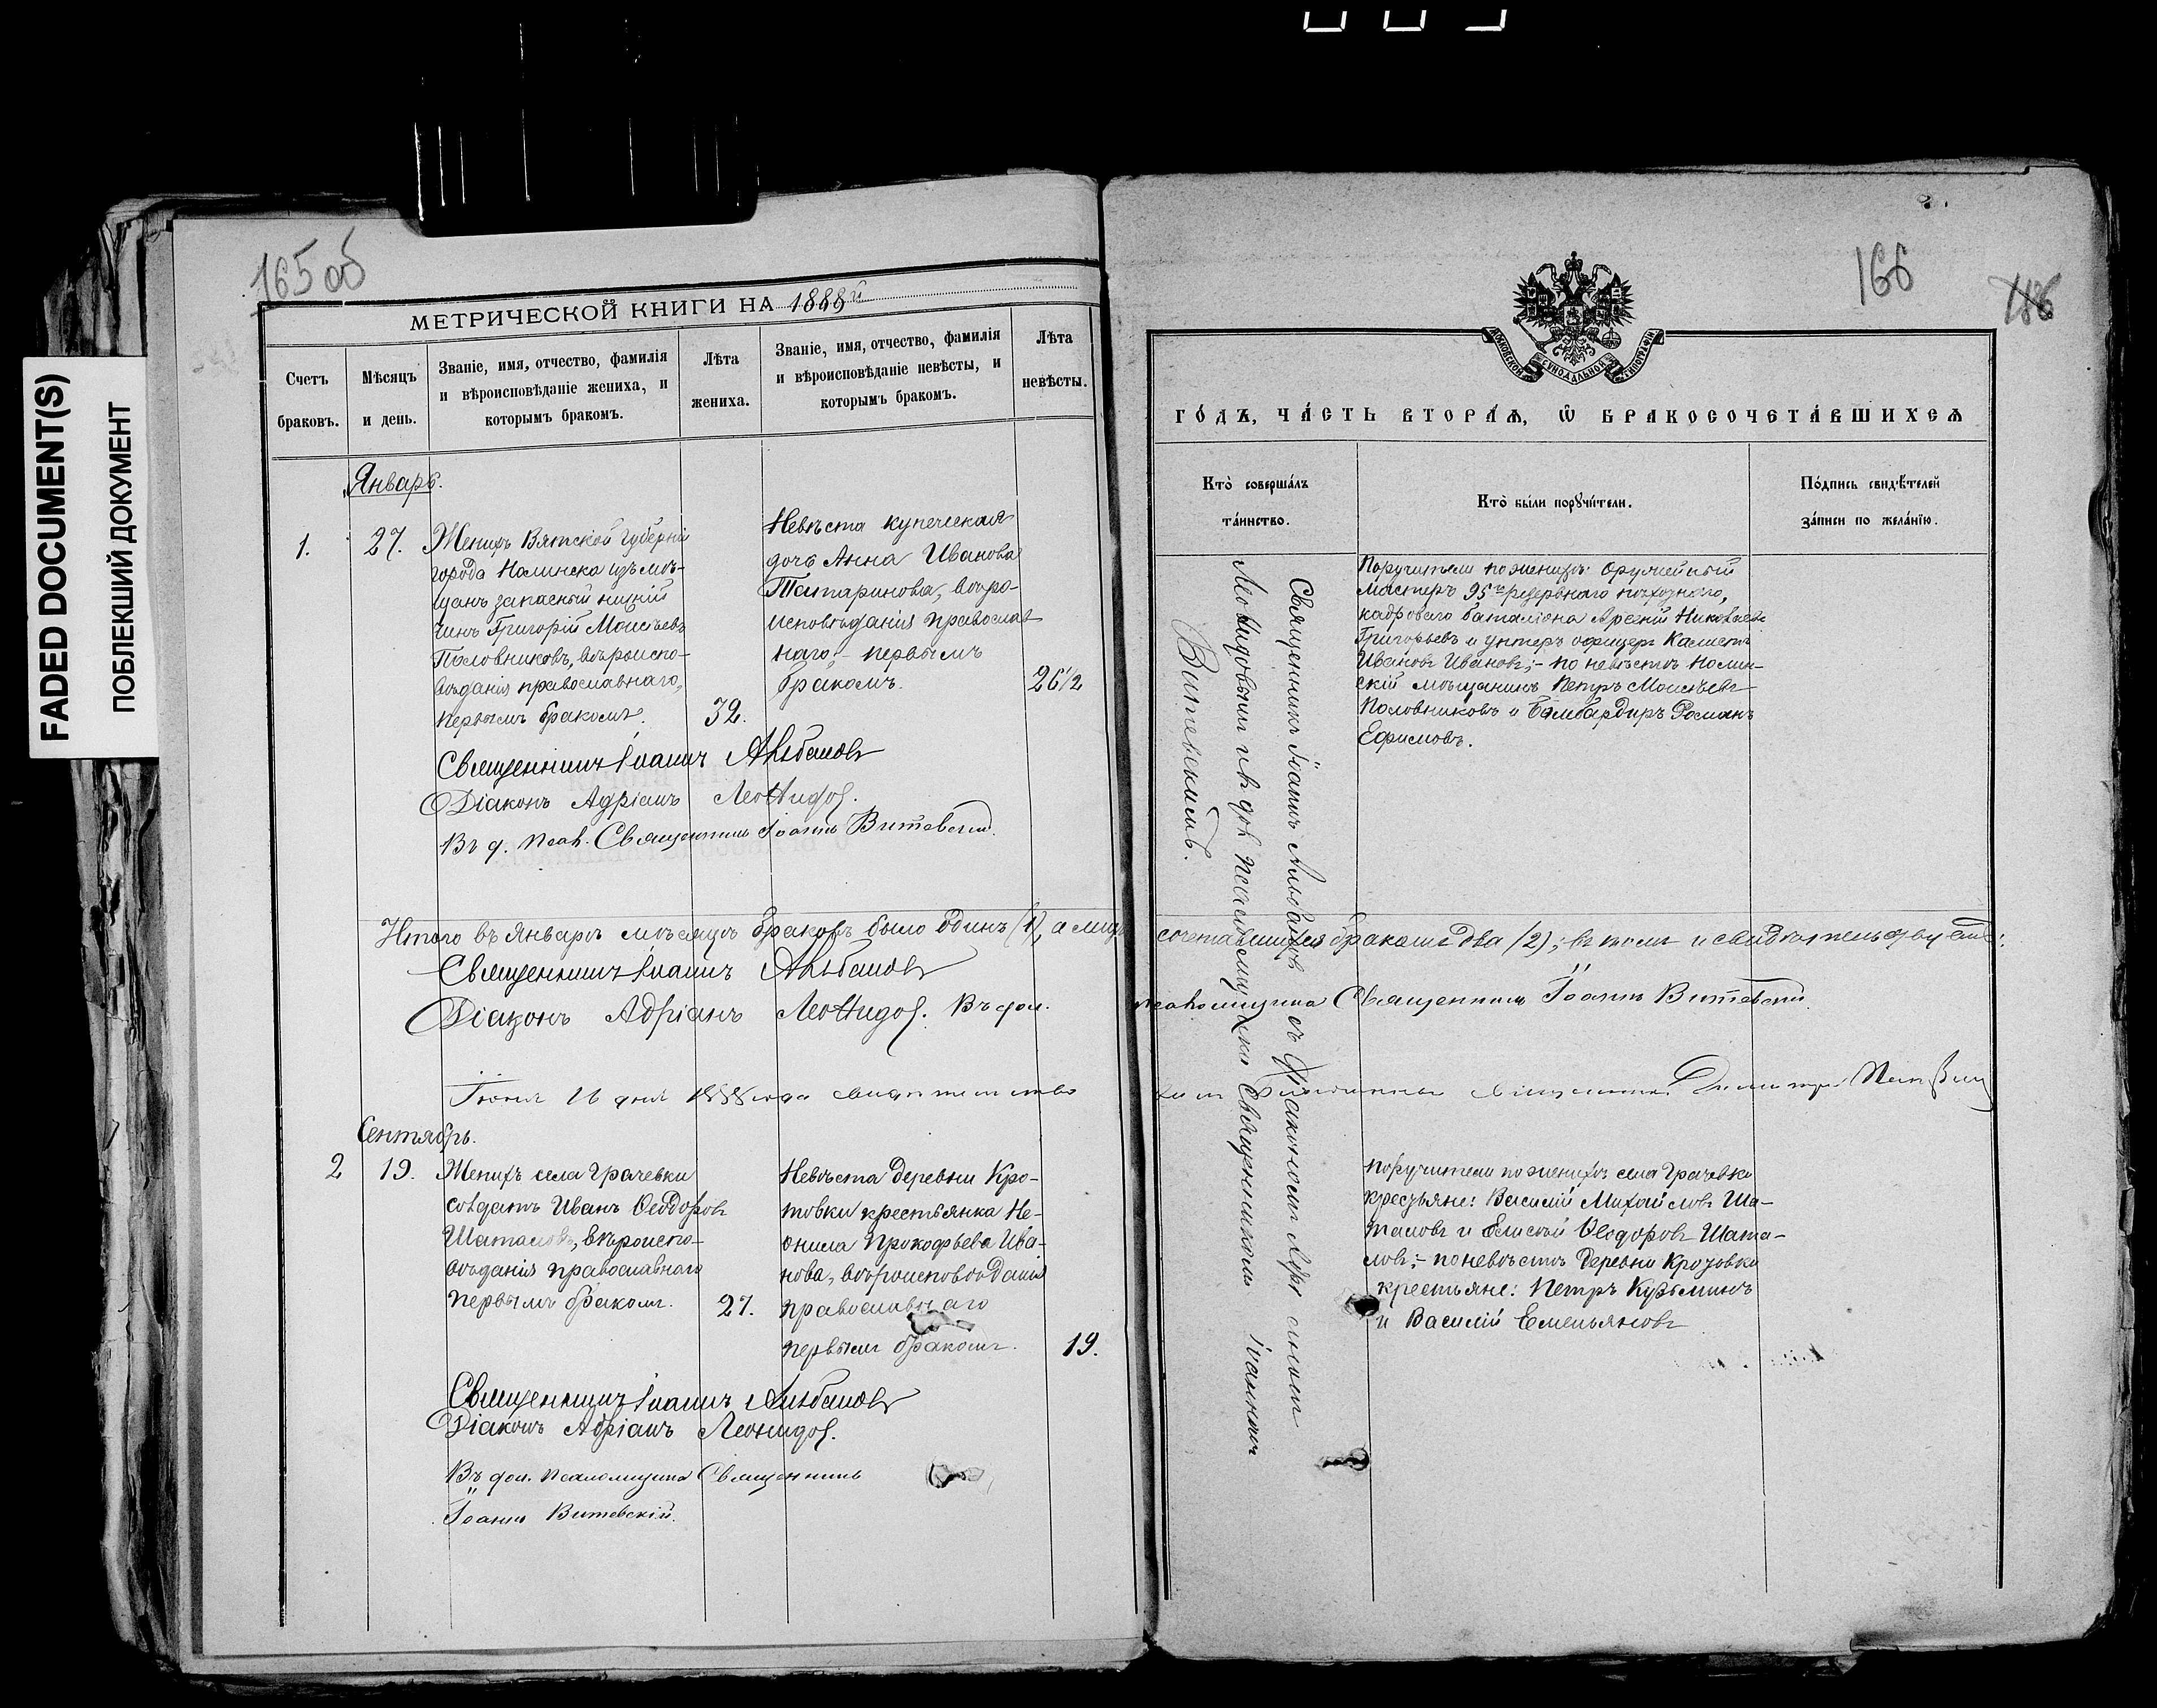 FADED DOCUMENT(S)
ПОБЛЕКШИЙ ДОКУМЕНТ
165 об
МЕТРИЧЕСКОЙ КНИГИ НА 1888й
Счетъ браковъ.
Мѣсяцъ и день.
Званіе, имя, отчество, фамилія
и вѣроисповѣданіе жениха, и
которымъ бракомъ.
Лѣта
жениха.
Званіе, имя, отчество, фамилія
и вѣроисповѣданіе невѣсты, и
которымъ бракомъ.
Лѣта
невѣсты.
Январь.
1.
27.
Женихъ Вятской губерніи
города Нолинска изъ мѣ-
щанъ запасный нижній
чинъ Григорій Моисѣевъ
Половниковъ, вѣроиспо-
вѣданія православнаго,
первымъ бракомъ.
32.
Невѣста купеческая
дочь Анна Иванова
Татаринова, вѣро-
исповѣданія православ
наго, - первымъ
бракомъ.
26 1/2
Священникъ Іоаннъ Альбановъ
Діаконъ Адріанъ Леонидов.
Въ д. псал. Священникъ Іоаннъ Витевскій.
Итого въ Январѣ мѣсяцѣ браковъ было одинъ (1), а лицъ
Священникъ Іоаннъ Альбановъ
Діаконъ Адріанъ Леонидов. Въ дол.
Іюня 16 дня 1888 года
Сентябрь.
2
19.
Женихъ села Грачевки
солдатъ Иванъ Ѳеодоровъ
Шаталовъ, вѣроиспо-
вѣданія православнаго
первымъ бракомъ.
27.
Невѣста деревни Кро-
товки крестьянка Не-
онила Прокофьева Ива-
нова, вѣроисповѣданія
православнаго
первымъ бракомъ.
19.
Священникъ Іоаннъ Альбановъ
Діаконъ Адріанъ Леонидов.
Въ дол. псаломщика Священникъ
Іоаннъ Витевскій.
166
186
МОСКОВСКОЙ СѴНОДАЛЬНОЙ ТИПОГРАФІИ
ГО́ДЪ, ЧА́СТЬ ВТОРА́Я, Ѡ БРАКОСОЧЕТА́ВШИХСЯ
Кто̀ соверша́лъ
та́инство.
Кто̀ бы́ли порꙋчи́тели.
По́дпись свидѣ́телей
за́писи по жела́нїю.
Священникъ Іоаннъ Альбановъ съ Діакономъ Адріаномъ
Леонидовымъ и въ дол. псаломщика Священникомъ Іоанномъ
Витевскимъ.
Поручители по женихѣ: Оружейный
мастеръ 95го резервнаго пѣхотнаго,
кадроваго баталіона Арсеній Николаевъ
Григорьевъ и унтеръ офицеръ
Ивановъ Ивановъ; - по невѣстѣ Нолин-
скій мѣщанинъ Петръ Моисѣевъ
Половниковъ и Бамбардиръ Романъ
Ефимовъ.
сочетавшихся бракомъ два (2); въ томъ и свидѣтельствуемъ:
псаломщика Священникъ Іоаннъ Витевскій.
поручители по женихѣ села Грачевки
крестьяне: Василій Михайловъ Ша-
таловъ и Елисей Ѳеодоровъ Шата-
ловъ; - по невѣстѣ деревни Кротовки
крестьяне: Петръ Кузьминъ
и Василій Емельяновъ